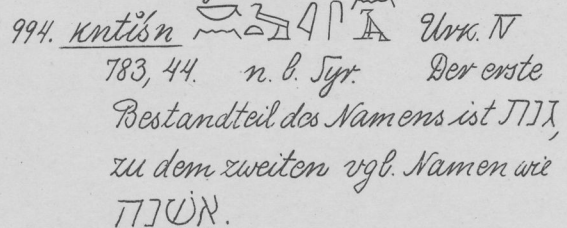 994. kntỉśn Urk. IV
783, 44. n. l. Syr. Der erste
Bestandteil des Namens ist גנת,
zu dem zweiten vgl. Namen wie
אשׁנה.